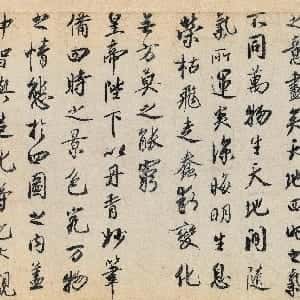 之意盡矣天地四時之氣
不同萬物生天地間隨
氣所運炎涼晦明生息
榮枯飛走蠢動變化
無方莫之能窮
皇帝陛下以丹青妙筆
備四時之景色究万物
之情態於四圖之內蓋
神智與造化等也大觀